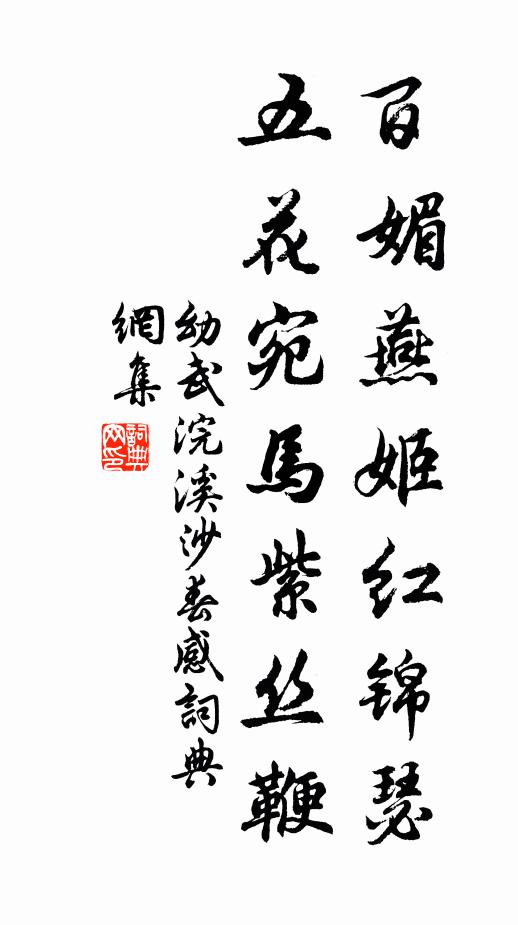 百媚燕姬红锦瑟
五花宛馬紫丝鞭
幼武浣溪沙春感詞典
網集
詞典
网印